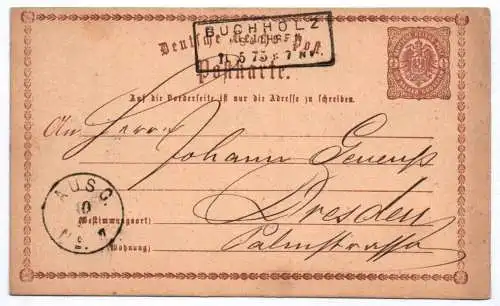 BUCHHOLZ
Deutsche Reichs-Post.
75 7 N
Postkarte.
Auf die Vorderseite ist nur die Adresse zu schreiben.
An Herrn
Johann
AUSG.
10
Dresden
(Bestimmungsort)
N. 2.
Palmstrasse
(Wohnung)